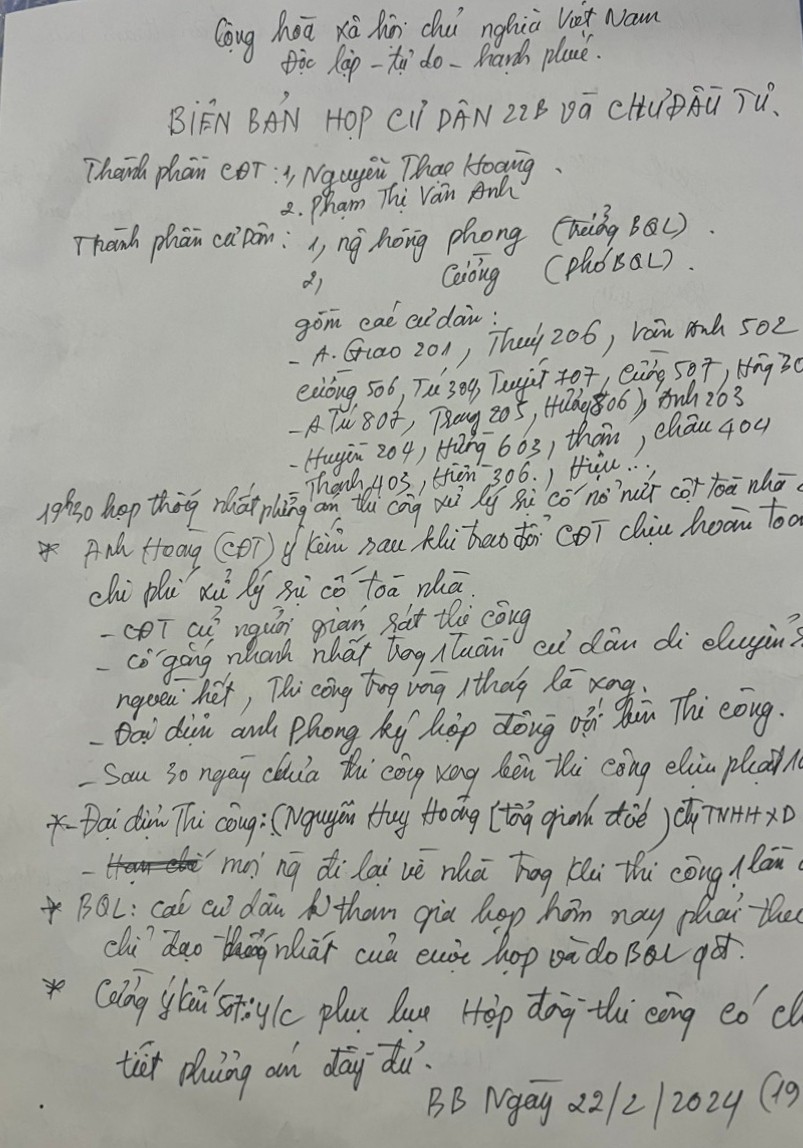 Cộng hoà xã hội chủ nghĩa Việt Nam
Độc lập - tự do - hạnh phúc.
BIÊN BẢN HỌP CƯ DÂN 22B và CHỦ ĐẦU TƯ.
Thành phần CĐT: 1, Nguyễn Thao Hoàng.
2. Phạm Thị Vân Anh
Thành phần cư dân: 1, ng hồng phong (trưởng BQL).
2, Cường (phó BQL).
gồm các cư dân:
- A. Giao 201, Thuý 206, Vân Anh 502
Cường 506, Tú 304, Tuyết 707, Cường 507, Hồng 30
- A Tú 807, Trang 205, Hường 806), Anh 203
- Huyền 204, Hưng 603, thơm, châu 404
Thanh 403, Hiền 306., Hiệu...
19h30 họp thống nhất phương án thi công xử lý sự cố nổ nứt cột toà nhà
* Anh Hoàng (CĐT) ý kiến sau khi trao đổi CĐT chịu hoàn toà
chi phí xử lý sự cố toà nhà.
- CĐT cử người giám sát thi công
- Cố gắng nhanh nhất trong 1 tuần cư dân di chuyển
người hết, Thi công trong vòng 1 tháng là xong.
- Đại diện anh Phong ký hợp đồng với bên Thi công.
- Sau 30 ngày chưa thi công xong bên thi công chịu phạt 10
* - Đại diện Thi công: (Nguyễn Huy Hoàng [tổng giám đốc) cty TNHH XD
- mọi ng đi lại về nhà trong khi thi công 1 lần
* BQL: các cư dân k tham gia họp hôm nay phải the
chỉ đạo thống nhất của cuộc họp và do BQL qđ.
* Cường ý kiến 507: y/c phụ lục Hợp đồng thi công có ch
tiết phương án đầy đủ.
BB Ngày 22/2/2024 (19